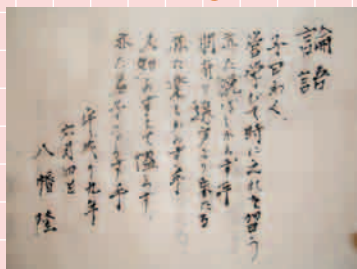 論語
子曰わく、
学びて時に之れを習う
亦た説ばしからず乎
朋有り遠方より来たる
亦た楽しからず乎
人知らずして慍らず、
亦た君子ならず乎
平成九年
六月四日
八幡隆